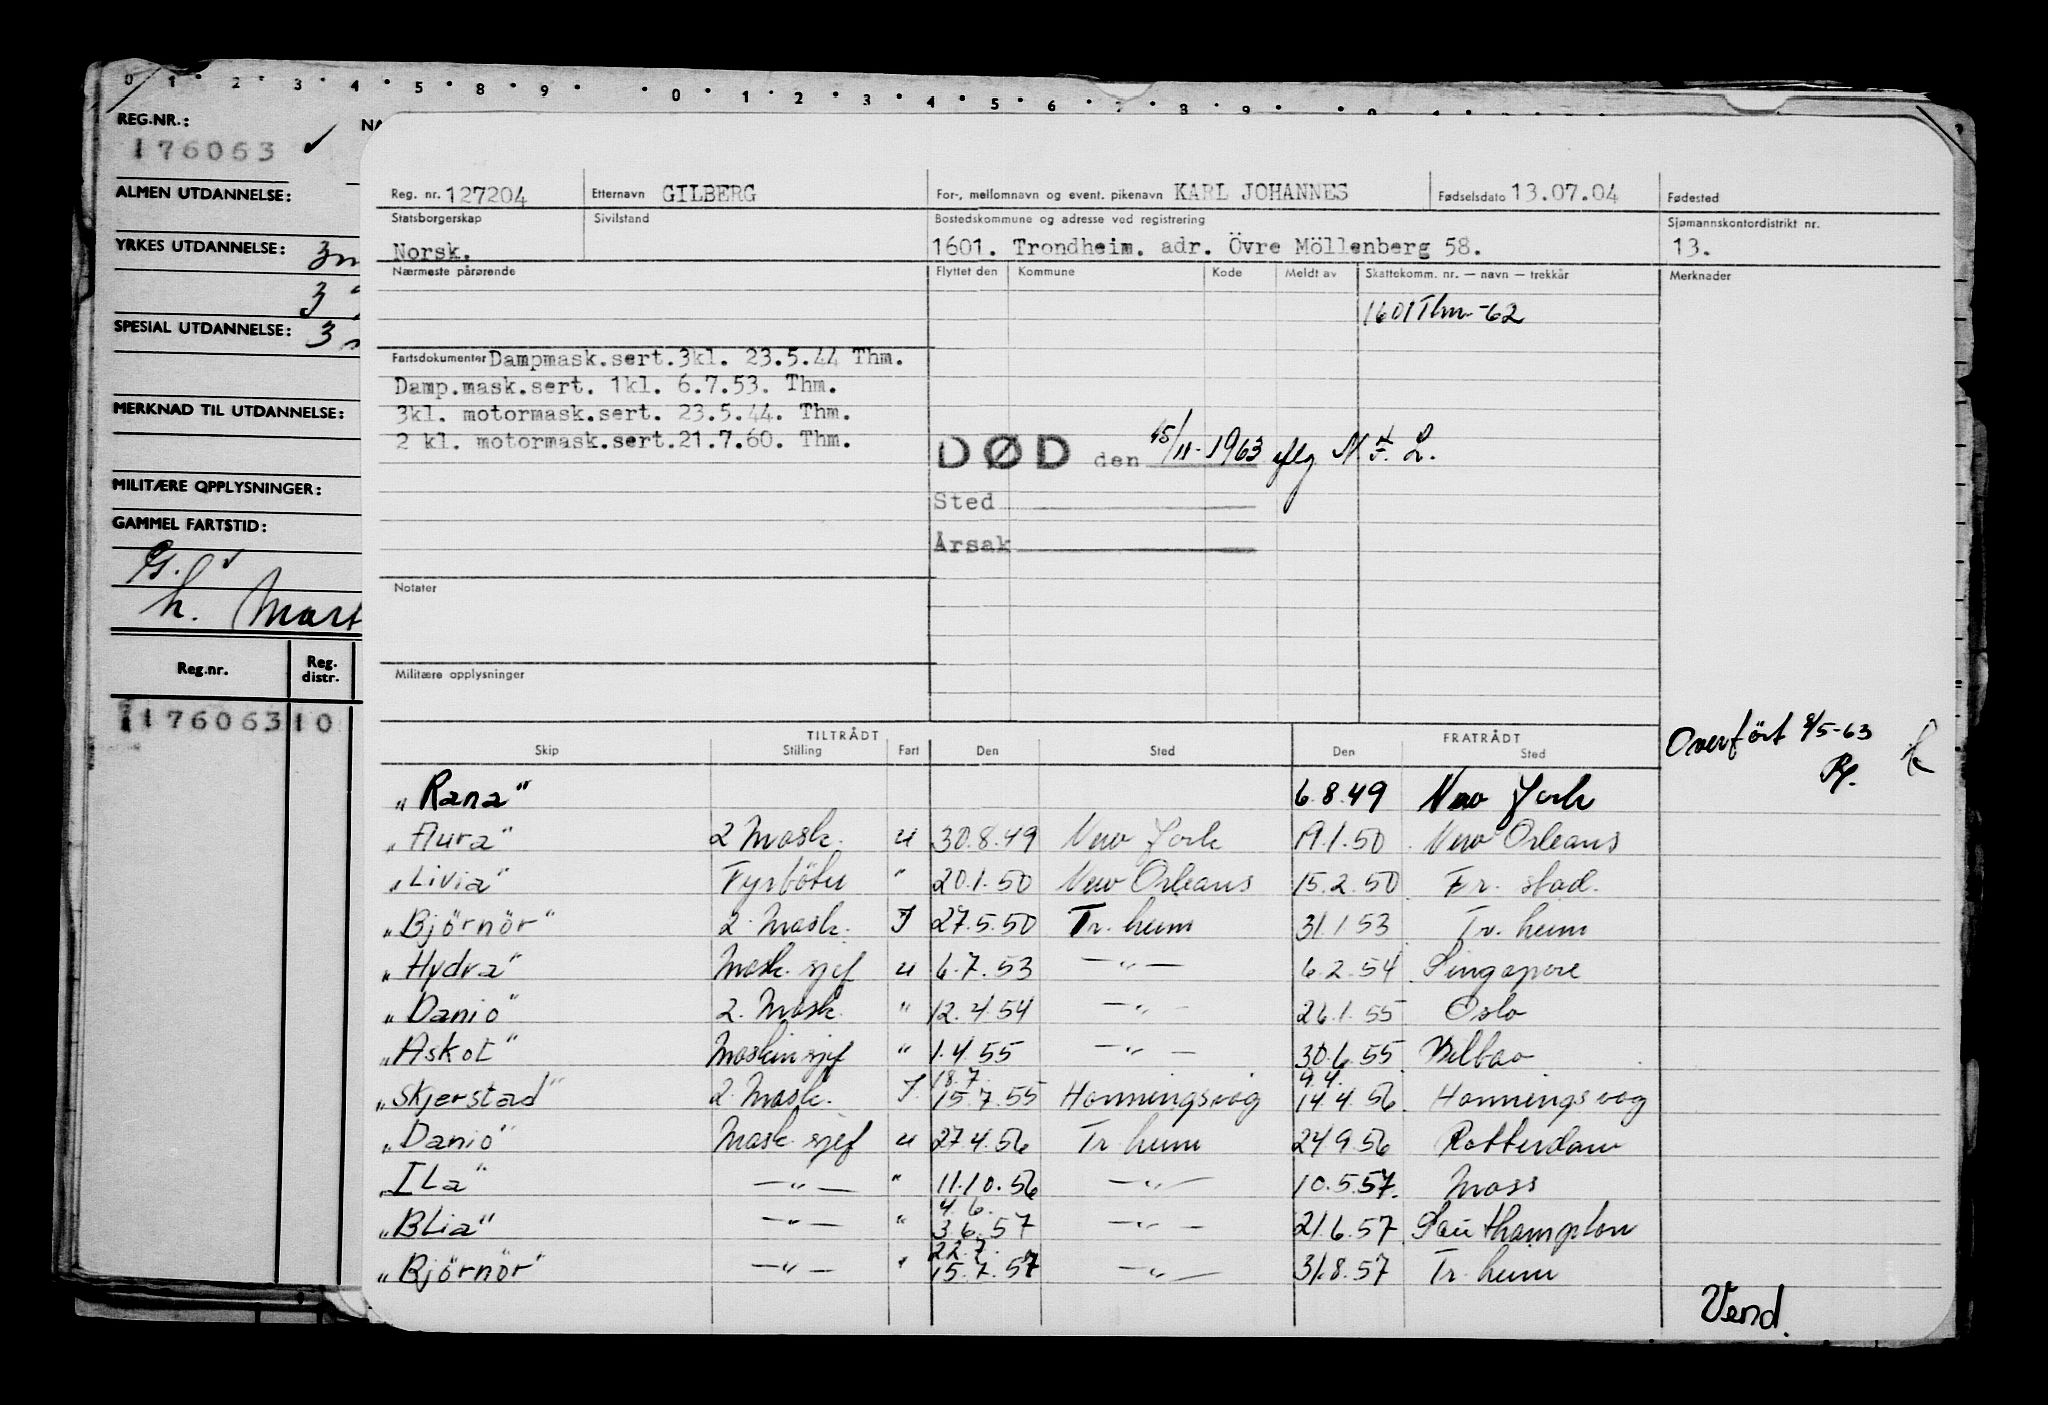 0 1 2 3 4 5 8 9 0 1 2 3 4 5 6 7 8 9 0
REG.NR.:
176063
ALMEN UTDANNELSE:
YRKES UTDANNELSE:
3
SPESIAL UTDANNELSE: 3
MERKNAD TIL UTDANNELSE:
MILITÆRE OPPLYSNINGER:
GAMMEL FARTSTID:
h. Mart
Reg.nr. Reg. distr.
176063 10
Reg. nr. 127204 Etternavn GILBERG For-, mellomnavn og event. pikenavn KARL JOHANNES Fødselsdato 13.07.04 Fødested
Statsborgerskap Sivilstand Bostedskommune og adresse ved registrering Sjømannskontordistrikt nr.
Norsk. 1601. Trondheim. adr. Övre Möllenberg 58. 13.
Nærmeste pårørende Flyttet den Kommune Kode Meldt av Skattekomm. nr. — navn — trekkår Merknader
1601 Thm -62
Fartsdokumenter Dampmask.sert.3kl. 23.5.44 Thm.
Damp.mask.sert. 1kl. 6.7.53. Thm.
3kl. motormask.sert. 23.5.44. Thm.
2 kl. motormask.sert.21.7.60. Thm.
DØD den 15/11-1963 iflg N.F.D.
Sted
Årsak
Notater
Militære opplysninger
Overfört 8/5-63
TILTRÅDT FRATRÅDT
Skip Stilling Fart Den Sted Den Sted
"Rana" 6.8.49 New York
"Aura" 2 Mask. u 30.8.49 New York 19.1.50 New Orleans
"Livia" Fyrböter " 20.1.50 New Orleans 15.2.50 Fr. stad.
"Björnör" 2. Mask. I 27.5.50 Tr. heim 31.1.53 Tr. heim
"Hydra" Mask. sjef u 6.7.53 —"— 6.2.54 Singapore
"Danio" 2. Mask. " 12.4.54 —"— 26.1.55 Oslo
"Askot" Maskin sjef " 1.4.55 —"— 30.6.55 Bilbao
18.7. 9.4.
"Skjerstad" 2. Mask. I. 15.7.55 Honningsvåg 14.4.56 Honningsvåg
"Danio" Mask. sjef u 27.4.56 Tr. heim 24.9.56 Rotterdam
"ILa" —"— " 11.10.56 —"— 10.5.57. Moss
4.6.
"BLia" —"— " 3.6.57 —"— 21.6.57 Southampton
22.7.
"Björnör" —"— " 15.7.57 —"— 31.8.57 Tr. heim
Vend.